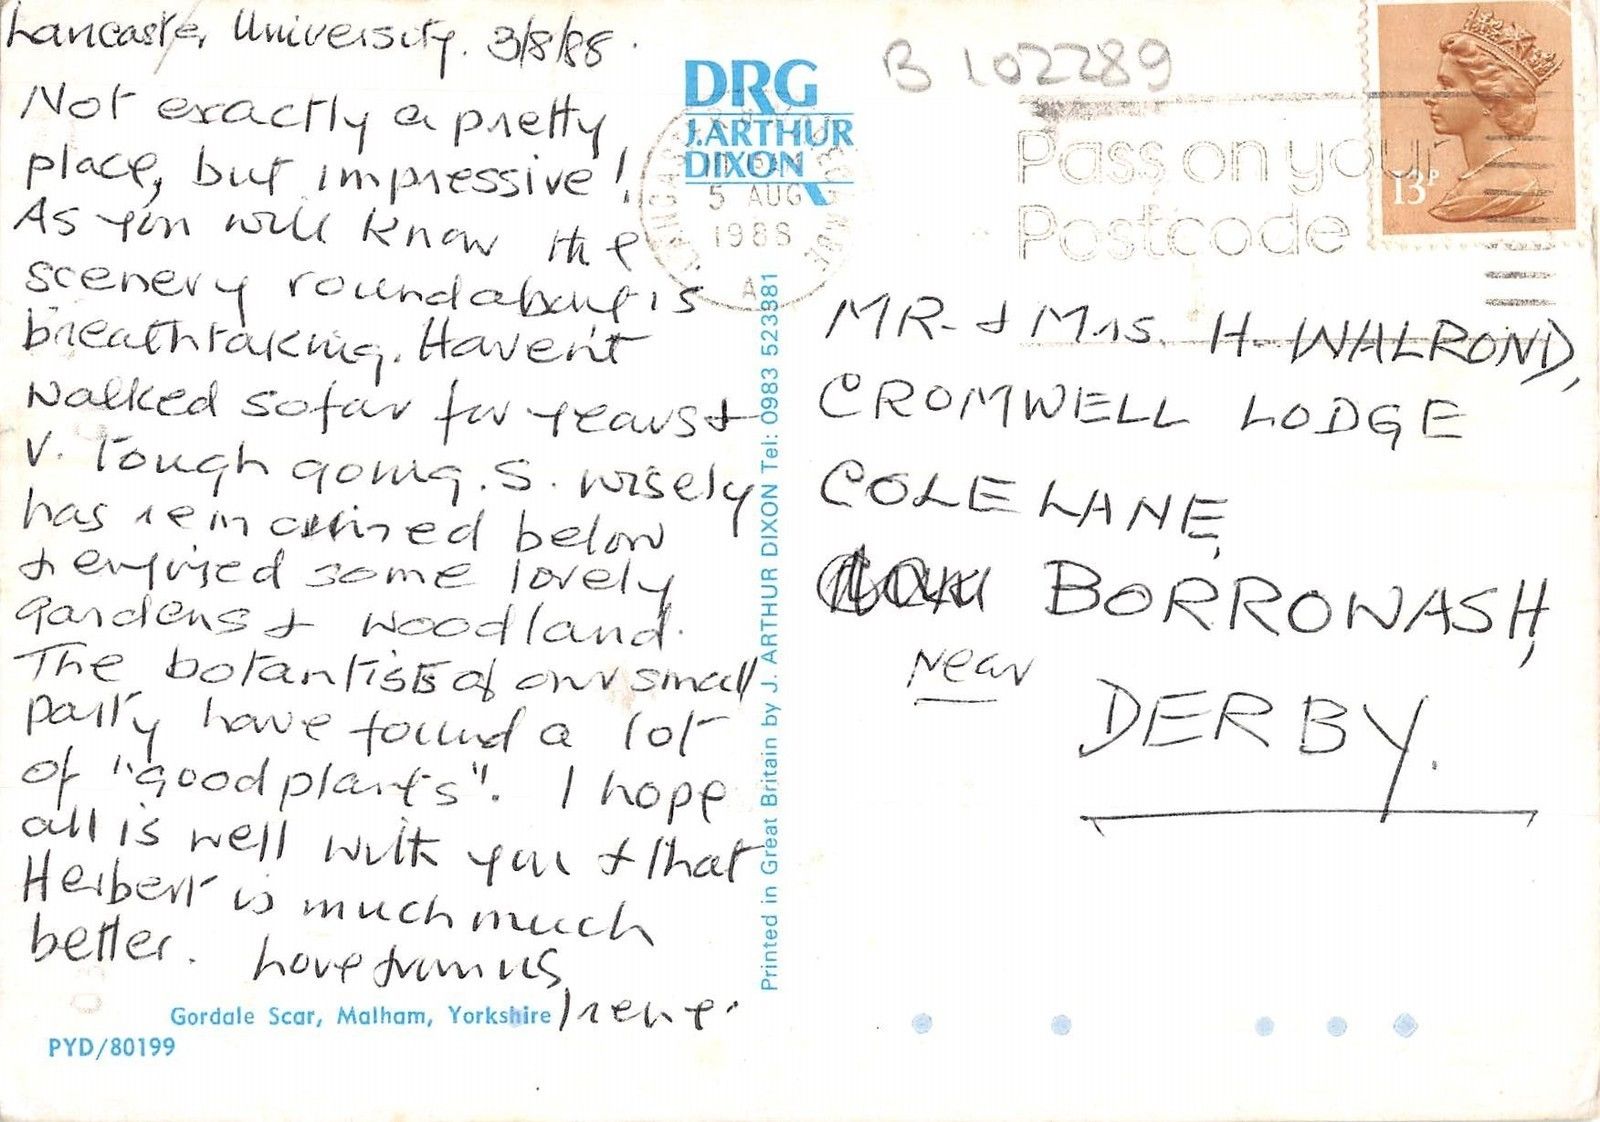 Lancaster University. 3/8/88.
Not exactly a pretty
place, but impressive!
As you will know the
scenery roundabout is
breathtaking. Haven't
walked so far for years &
v. tough going. S. wisely
has remained below
& enjoyed some lovely
gardens & woodland.
The botanists of our small
party have found a lot
of "good plants". I hope
all is well with you & that
Herbert is much much
better. Love from us,
Irene.
Gordale Scar, Malham, Yorkshire
PYD/80199
DRG
J.ARTHUR
DIXON
Printed in Great Britain by J. ARTHUR DIXON Tel: 0983 523381
5 AUG
1988
A
B 102289
Pass on your
Postcode
13P
MR. & Mrs. H. WALROND,
CROMWELL LODGE
COLE LANE,
BORROWASH,
Near
DERBY.